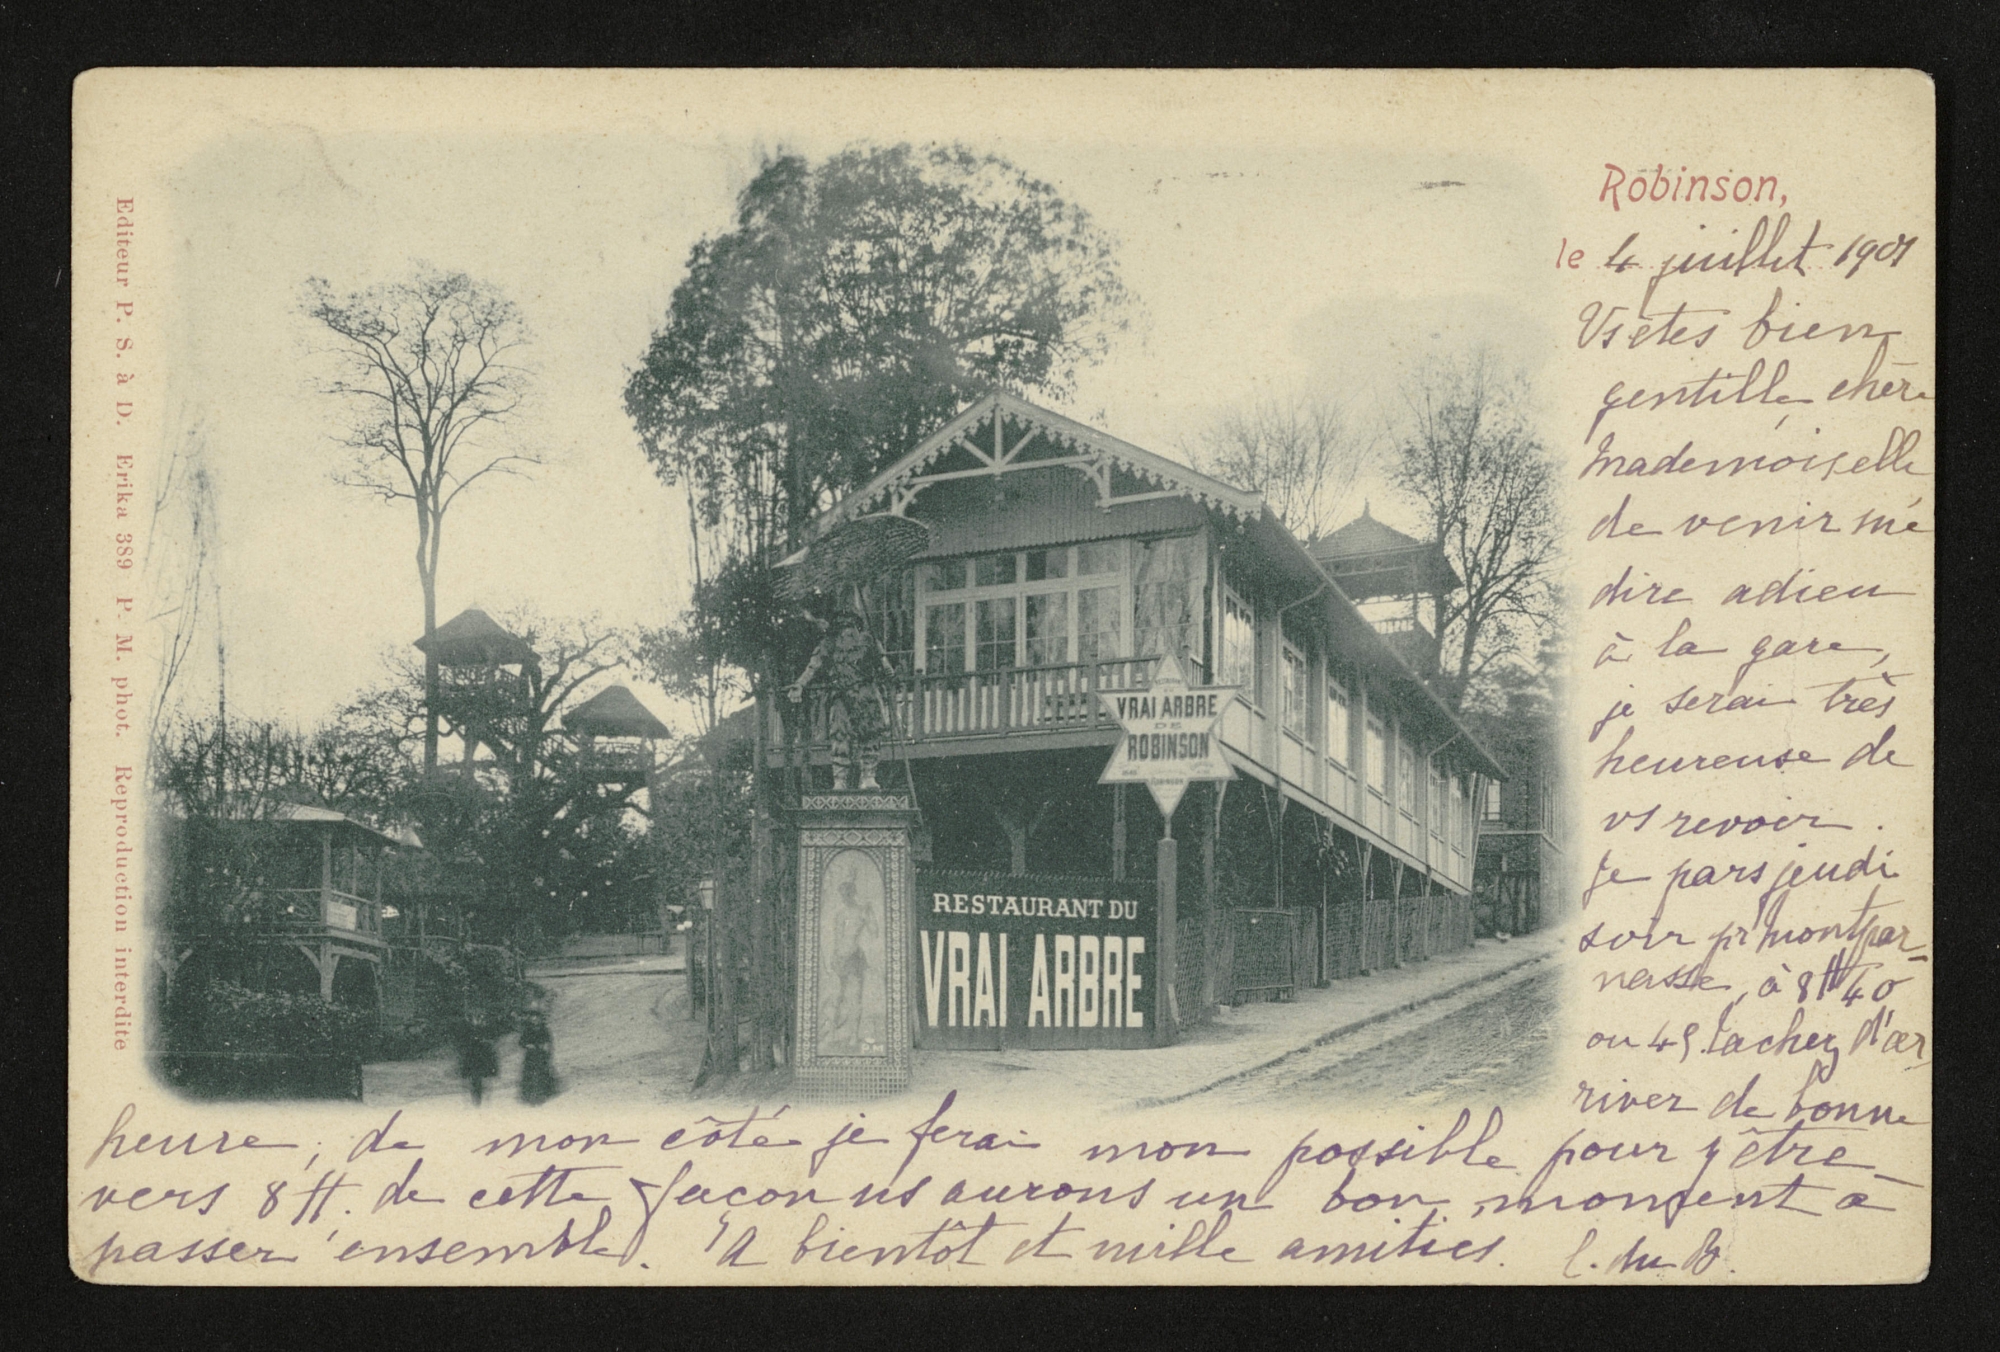 Editeur P. S. à D. Erika 389 P. M. phot. Reproduction interdite
VRAI ARBRE
DE
ROBINSON
RESTAURANT DU
VRAI ARBRE
Robinson,
le 4 juillet 1901
Vs êtes bien
gentille, chère
Mademoiselle
de venir me
dire adieu
à la gare,
je serai très
heureuse de
vs revoir.
Je pars jeudi
soir pr Montpar-
nasse, à 8H 40
ou 45. tachez d'ar
river de bonne
heure, de mon côté je ferai mon possible pour y être
vers 8 H. de cette façon ns aurons un bon moment à
passer ensemble. A bientôt et mille amitiés. C. du B.